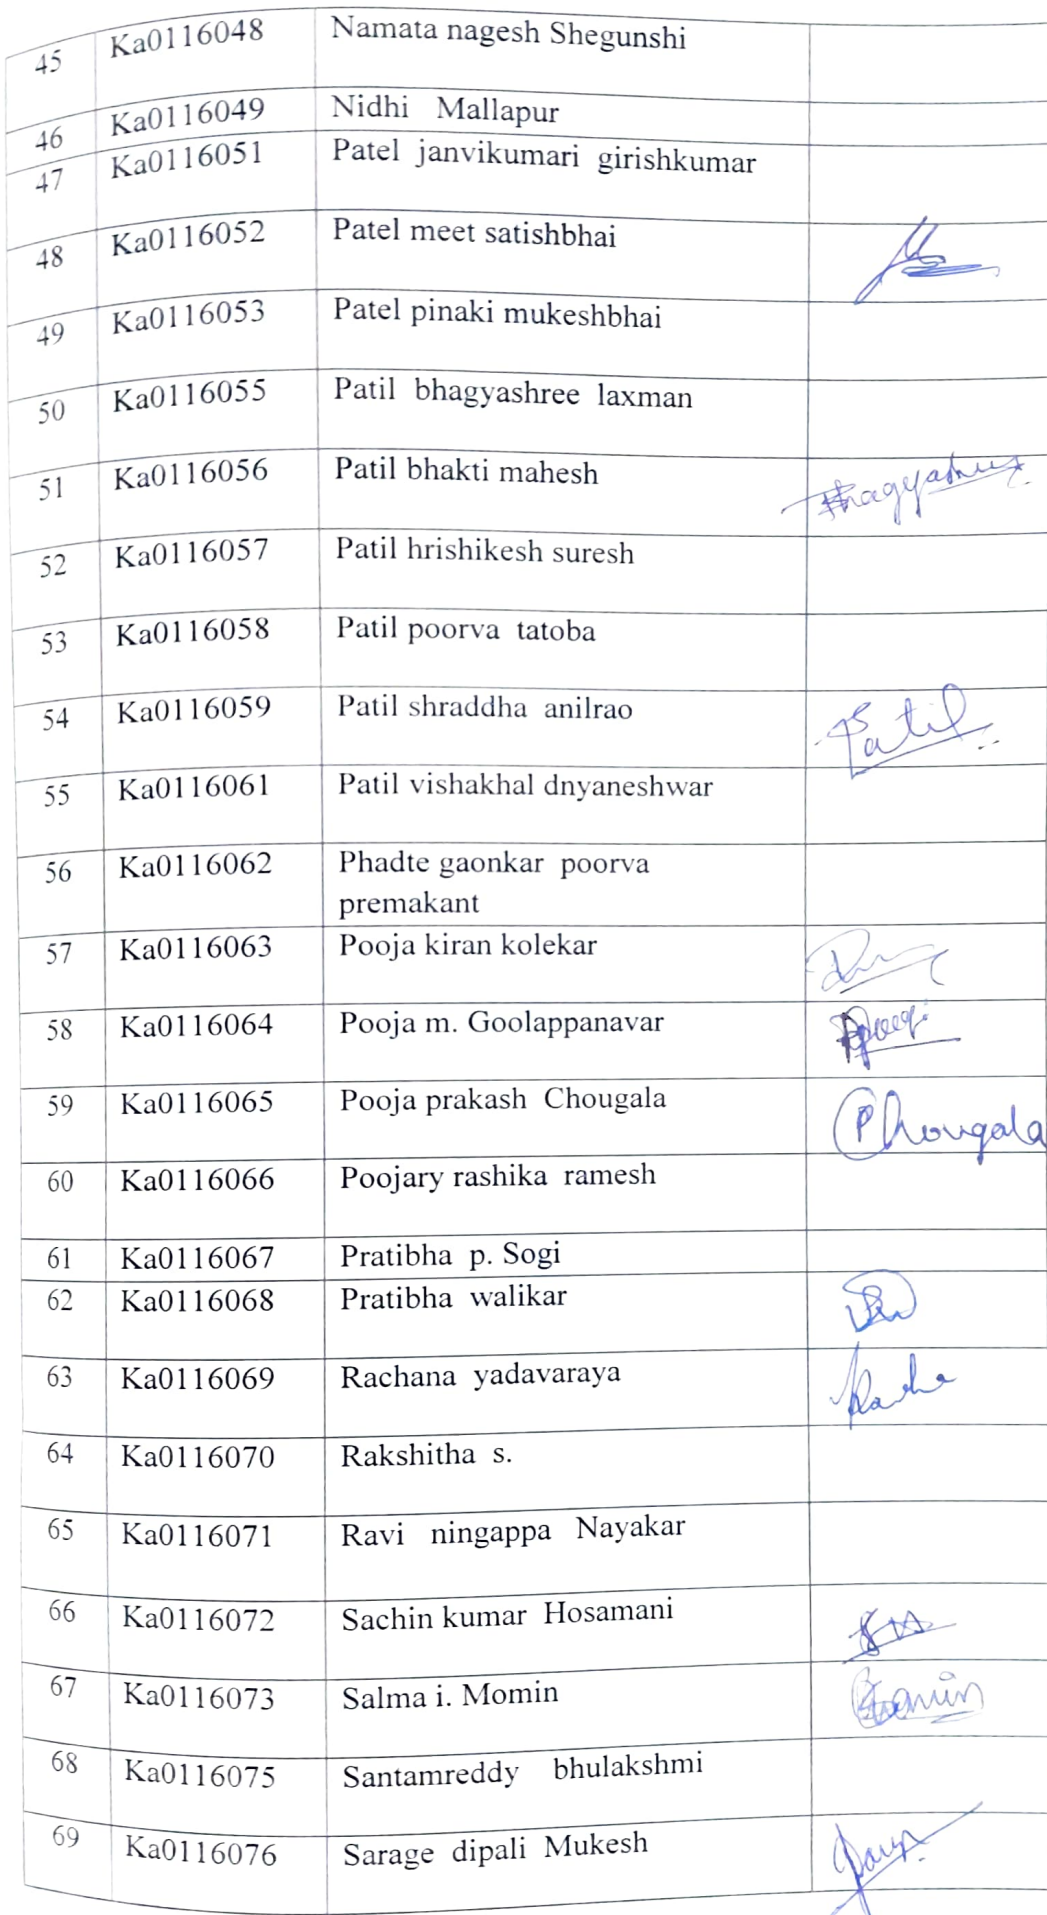 45 Ka0116048 Namata nagesh Shegunshi
46 Ka0116049 Nidhi Mallapur
47 Ka0116051 Patel janvikumari girishkumar
48 Ka0116052 Patel meet satishbhai
49 Ka0116053 Patel pinaki mukeshbhai
50 Ka0116055 Patil bhagyashree laxman
51 Ka0116056 Patil bhakti mahesh
52 Ka0116057 Patil hrishikesh suresh
53 Ka0116058 Patil poorva tatoba
54 Ka0116059 Patil shraddha anilrao Patil
55 Ka0116061 Patil vishakhal dnyaneshwar
56 Ka0116062 Phadte gaonkar poorva
premakant
57 Ka0116063 Pooja kiran kolekar
58 Ka0116064 Pooja m. Goolappanavar
59 Ka0116065 Pooja prakash Chougala
60 Ka0116066 Poojary rashika ramesh
61 Ka0116067 Pratibha p. Sogi
62 Ka0116068 Pratibha walikar
63 Ka0116069 Rachana yadavaraya
64 Ka0116070 Rakshitha s.
65 Ka0116071 Ravi ningappa Nayakar
66 Ka0116072 Sachin kumar Hosamani
67 Ka0116073 Salma i. Momin
68 Ka0116075 Santamreddy bhulakshmi
69 Ka0116076 Sarage dipali Mukesh